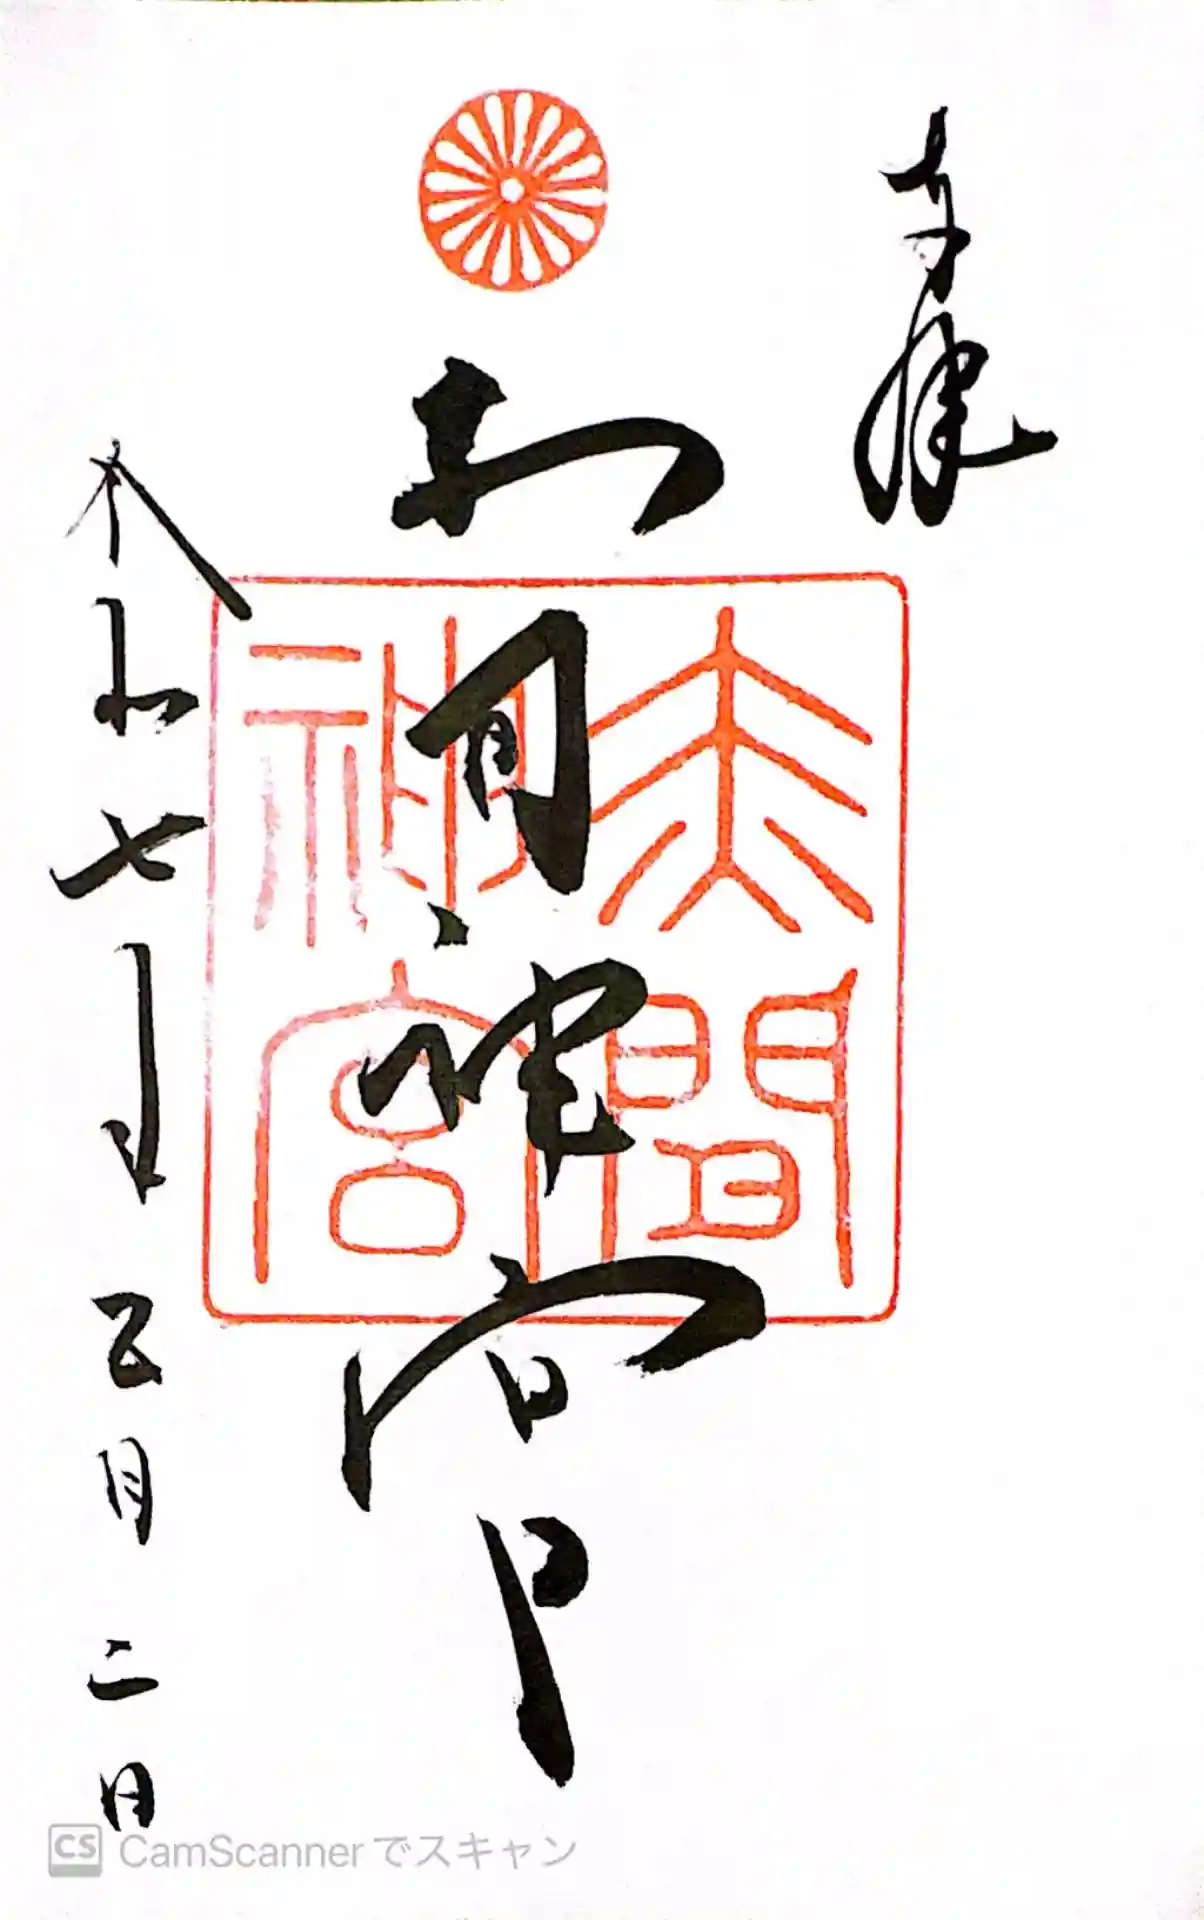 奉拝
赤間神宮
赤間
神宮
令和七年五月二日
CS CamScannerでスキャン